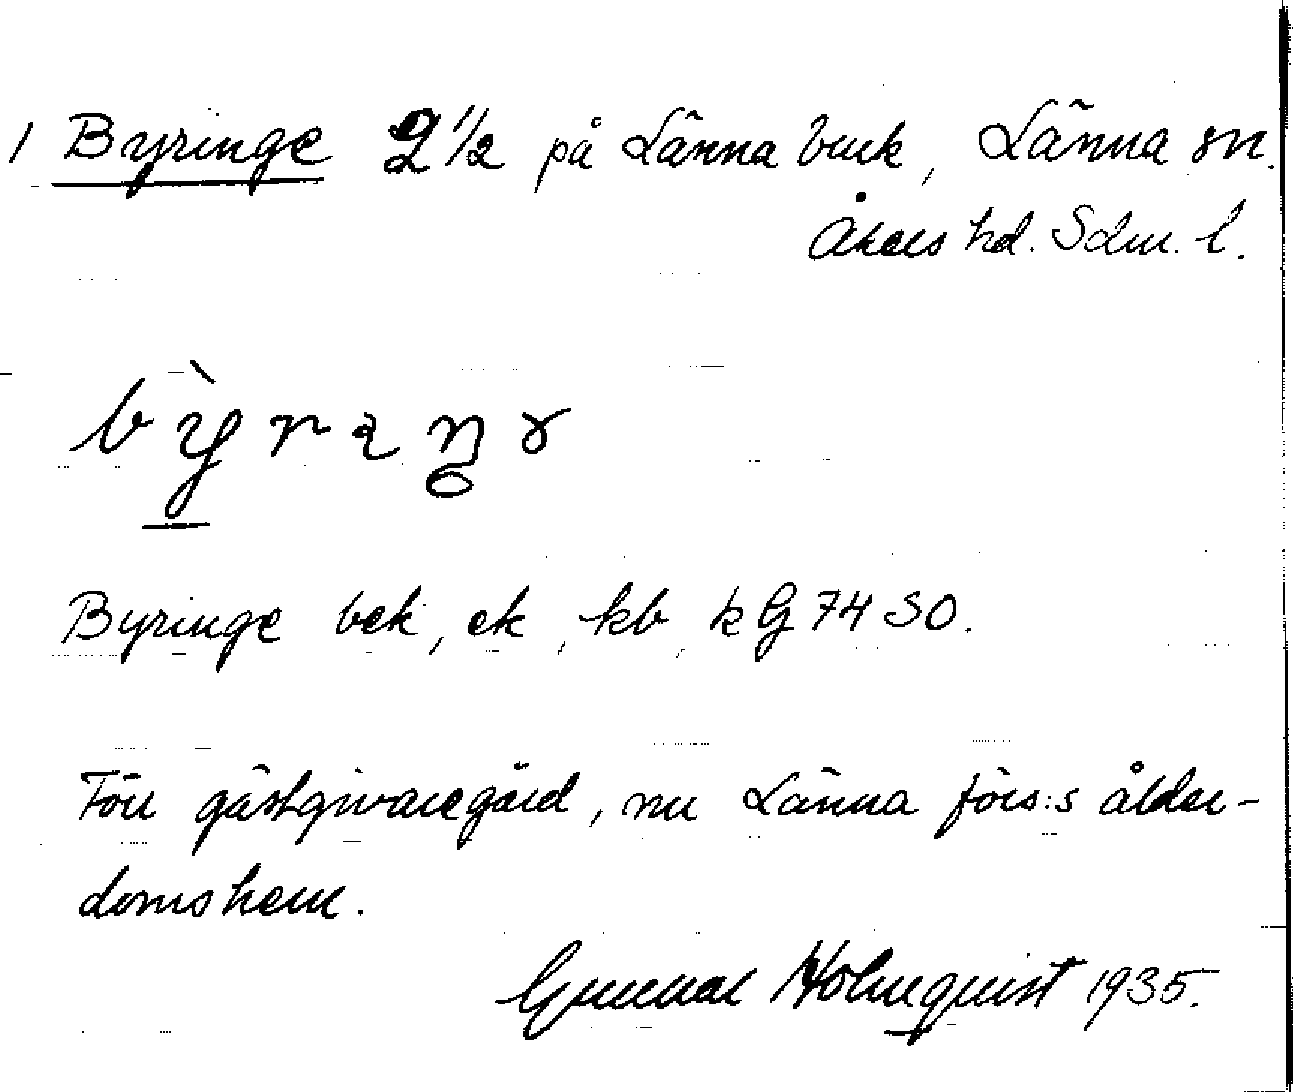 1 Byringe 2 1/2 på Länna bruk, Länna sn.
Åkers hd. Sdm. l.
bỳrıŋɤ
Byringe bek, ek, kb, kG 74 SO.
Förr gästgivaregård, nu Länna förs:s ålder-
domshem.
Gunnar Holmquist 1935.